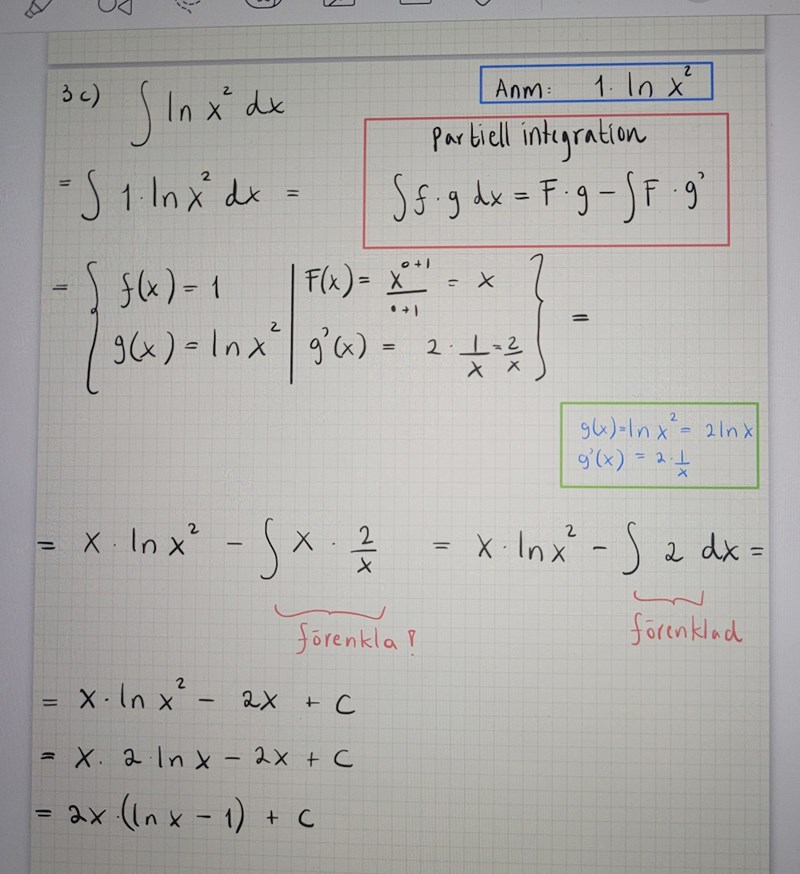 3c) ∫ ln x² dx
Anm: 1· ln x²
Partiell integration
∫ f·g dx = F·g – ∫ F·g'
= ∫ 1·ln x² dx =
= { f(x) = 1 | F(x) = x^(0+1)/(0+1) = x
g(x) = ln x² | g'(x) = 2 · 1/x = 2/x } =
g(x)=ln x² = 2 ln x
g'(x) = 2·1/x
= x · ln x² – ∫ x · 2/x = x · ln x² – ∫ 2 dx =
förenkla!
förenklad
= x · ln x² – 2x + C
= x · 2·ln x – 2x + C
= 2x·(ln x – 1) + C